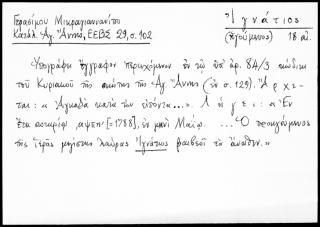 Γερασίμου Μικραγιαννανίτου
Κατάλ. Ἁγ. Ἄννης, ΕΕΒΣ 29, σ. 102
Ἰγνάτιος
(ἡγούμενος) 18 αἰ.
Ὑπογράφει ἔγγραφον περιεχόμενον ἐν τῷ ὑπ' ἀρ. 84/3 κώδικι
τοῦ Κυριακοῦ τῆς σκήτης τῆς Ἁγ. Ἄννης (ἐν σ. 129). Ἄρχε-
ται: «... κατὰ τὴν εἰσόντα...». Λήγει: «Ἐν
ἔτει σωτηρίῳ, αψπη' [=1788], ἐν μηνὶ Μαΐῳ. ...Ὁ προηγούμενος
τῆς ἱερᾶς μεγίστης Λαύρας Ἰγνάτιος βεβαιοῖ τὰ ἄνωθεν.»